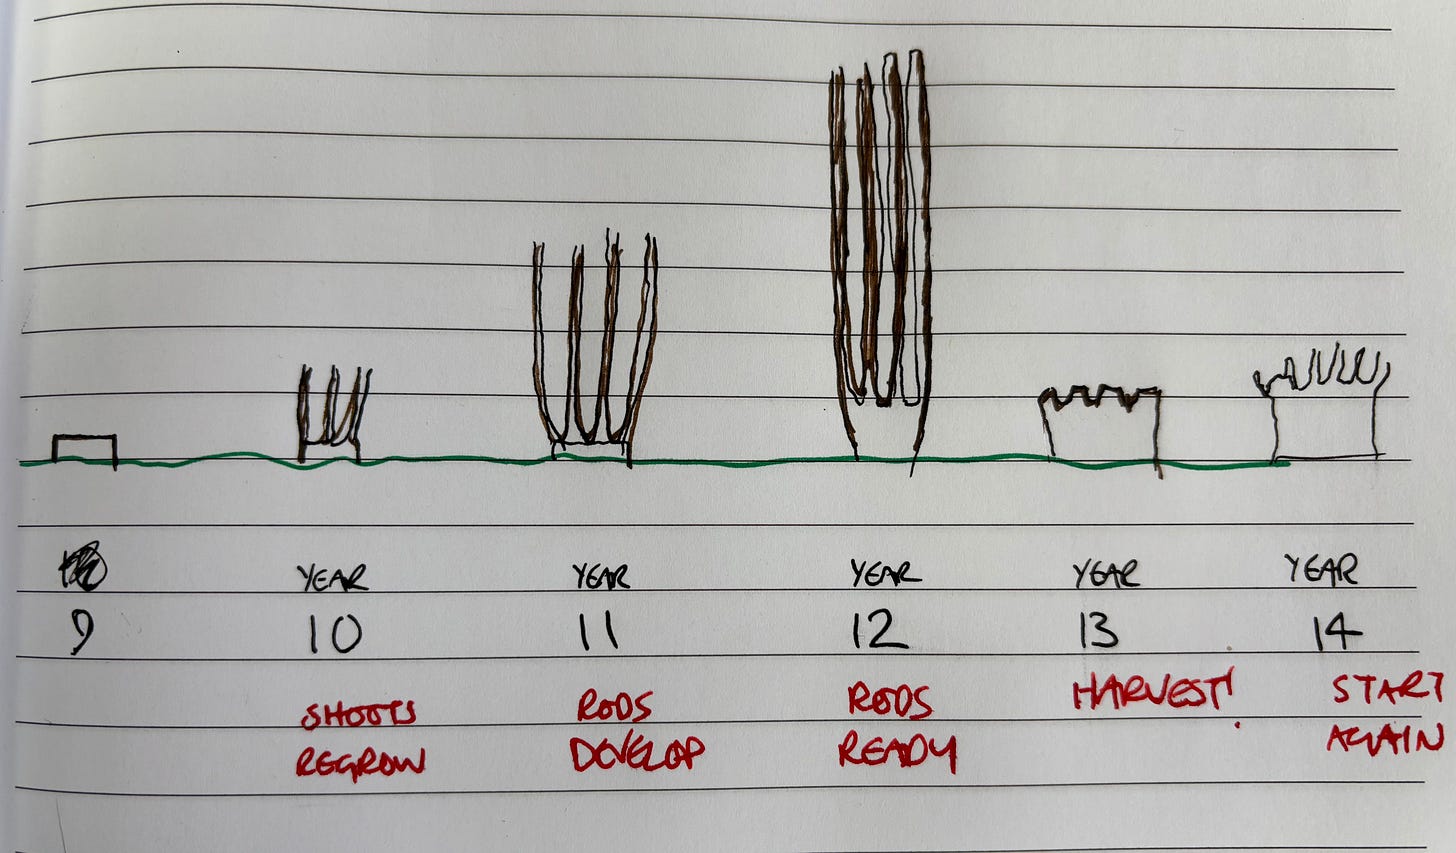 YEAR YEAR YEAR YEAR YEAR
9 10 11 12 13 14
SHOOTS RODS RODS HARVEST! START
REGROW DEVELOP READY AGAIN